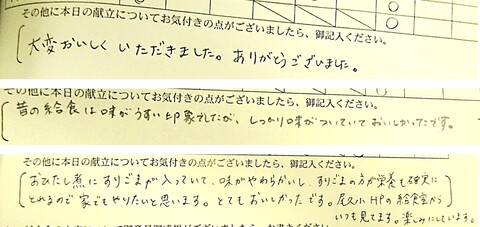 その他に本日の献立についてお気付きの点がございましたら、御記入ください。
大変おいしく いただきました。ありがとうございました。
その他に本日の献立についてお気付きの点がございましたら、御記入ください。
昔の給食は味がうすい印象でしたが、しっかり味がついていておいしかったです。
その他に本日の献立についてお気付きの点がございましたら、御記入ください。
おひたし煮にすりごまが入っていて、味がやわらかいし、すりごまの方が栄養も確実に
とれるので家でもやりたいと思います。とてもおいしかったです。尾久小HPの給食室から
いつも見てます。楽しみにしています。